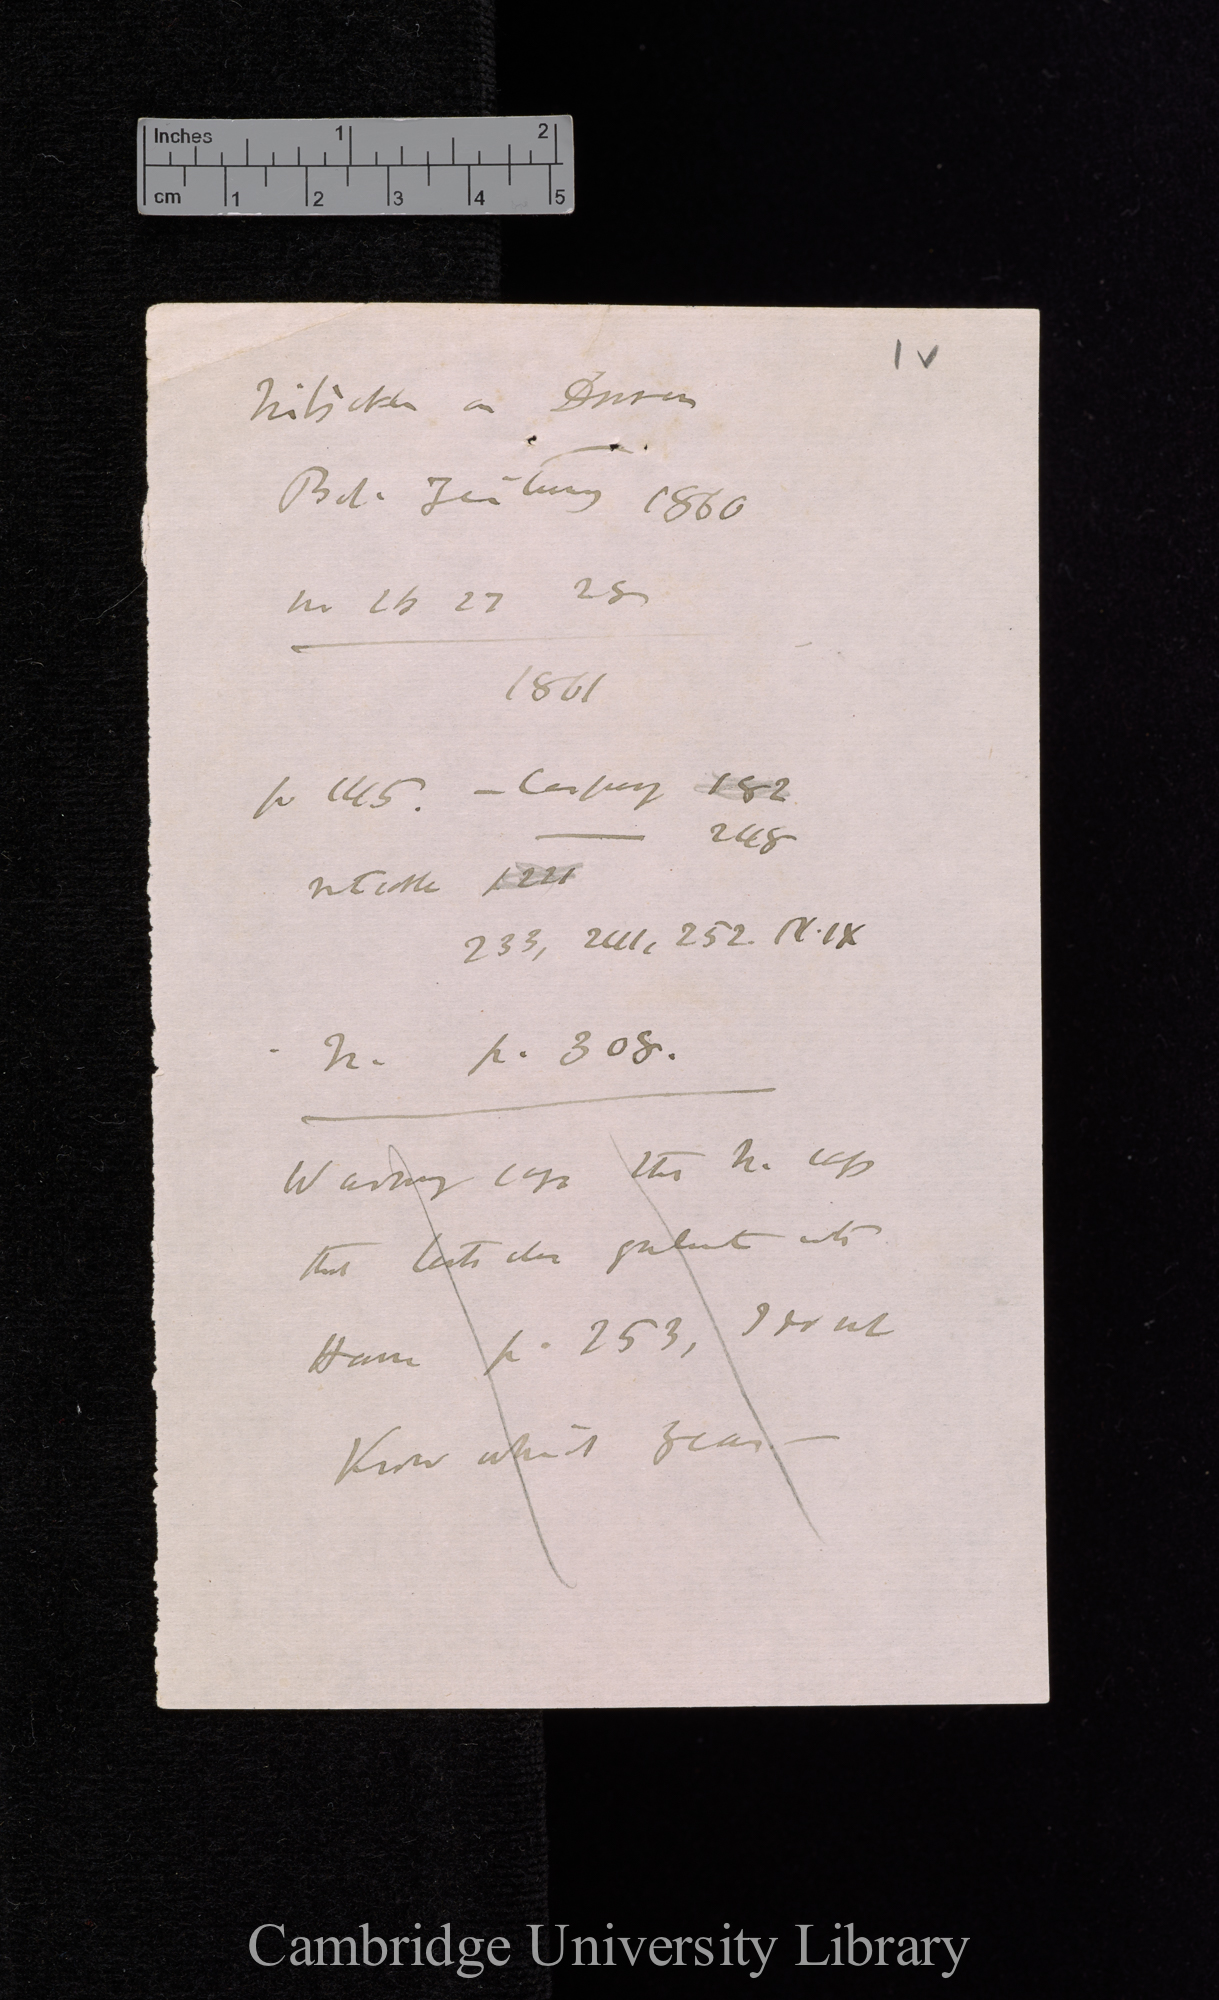 Inches 1 2
cm 1 2 3 4 5
1v
Nitschke on Drosera
Bot. Zeitung 1860
no 26 27 28
1861
p 145. — Caspary 182
248
Nitschke 1221
233, 241, 252.
N. p. 308.
Warming says that N. says
that
p. 253, I do not
Know which year —
Cambridge University Library